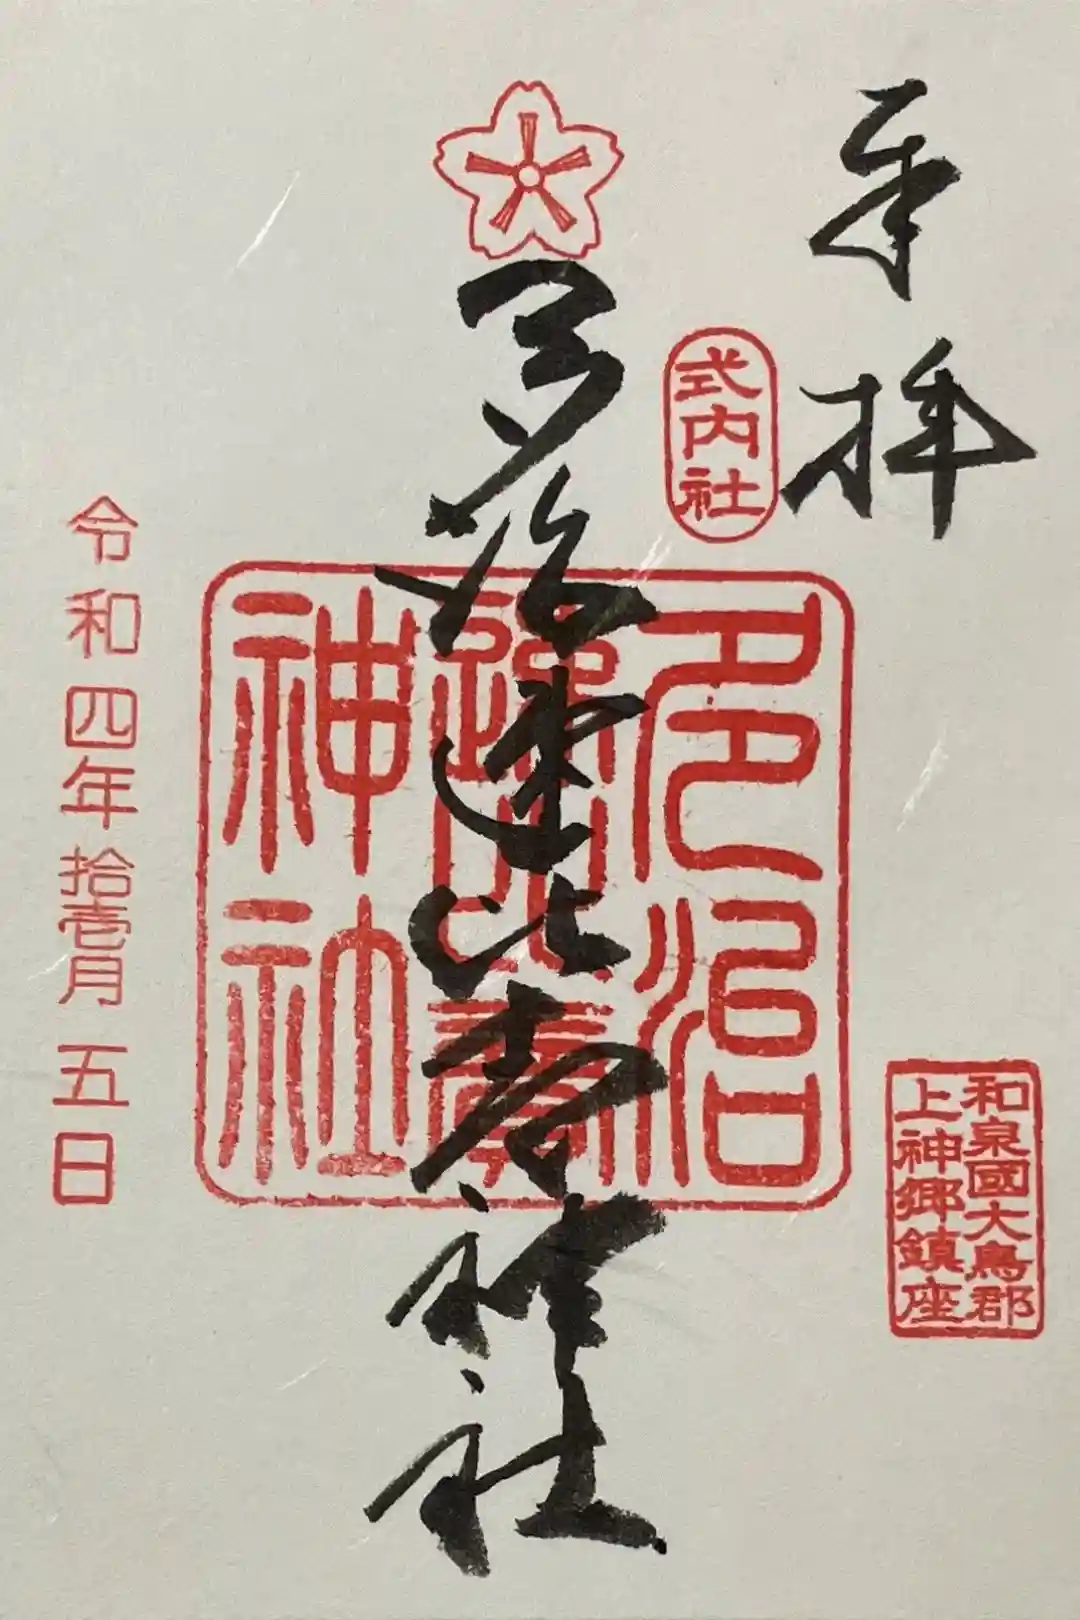 奉拝
式内社
和泉國大鳥郡
上神郷鎮座
多治速比売神社
多治
速比賣
神社
令和四年拾壱月五日